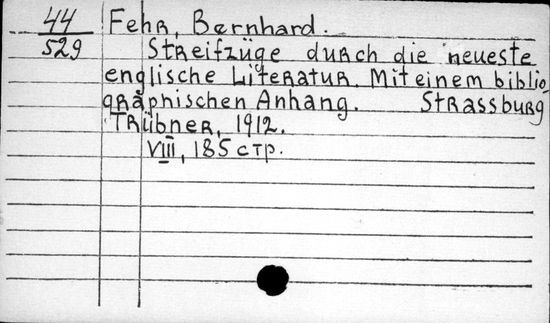 44
529
Fehr, Bernhard.
Streifzüge durch die neueste
englische Literatur. Mit einem biblio-
graphischen Anhang. Strassburg
Trübner, 1912.
VIII, 185 стр.